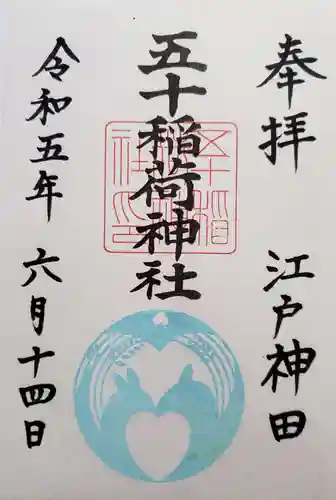 奉拝
江戸神田
五十稲荷神社
令和五年
六月十四日